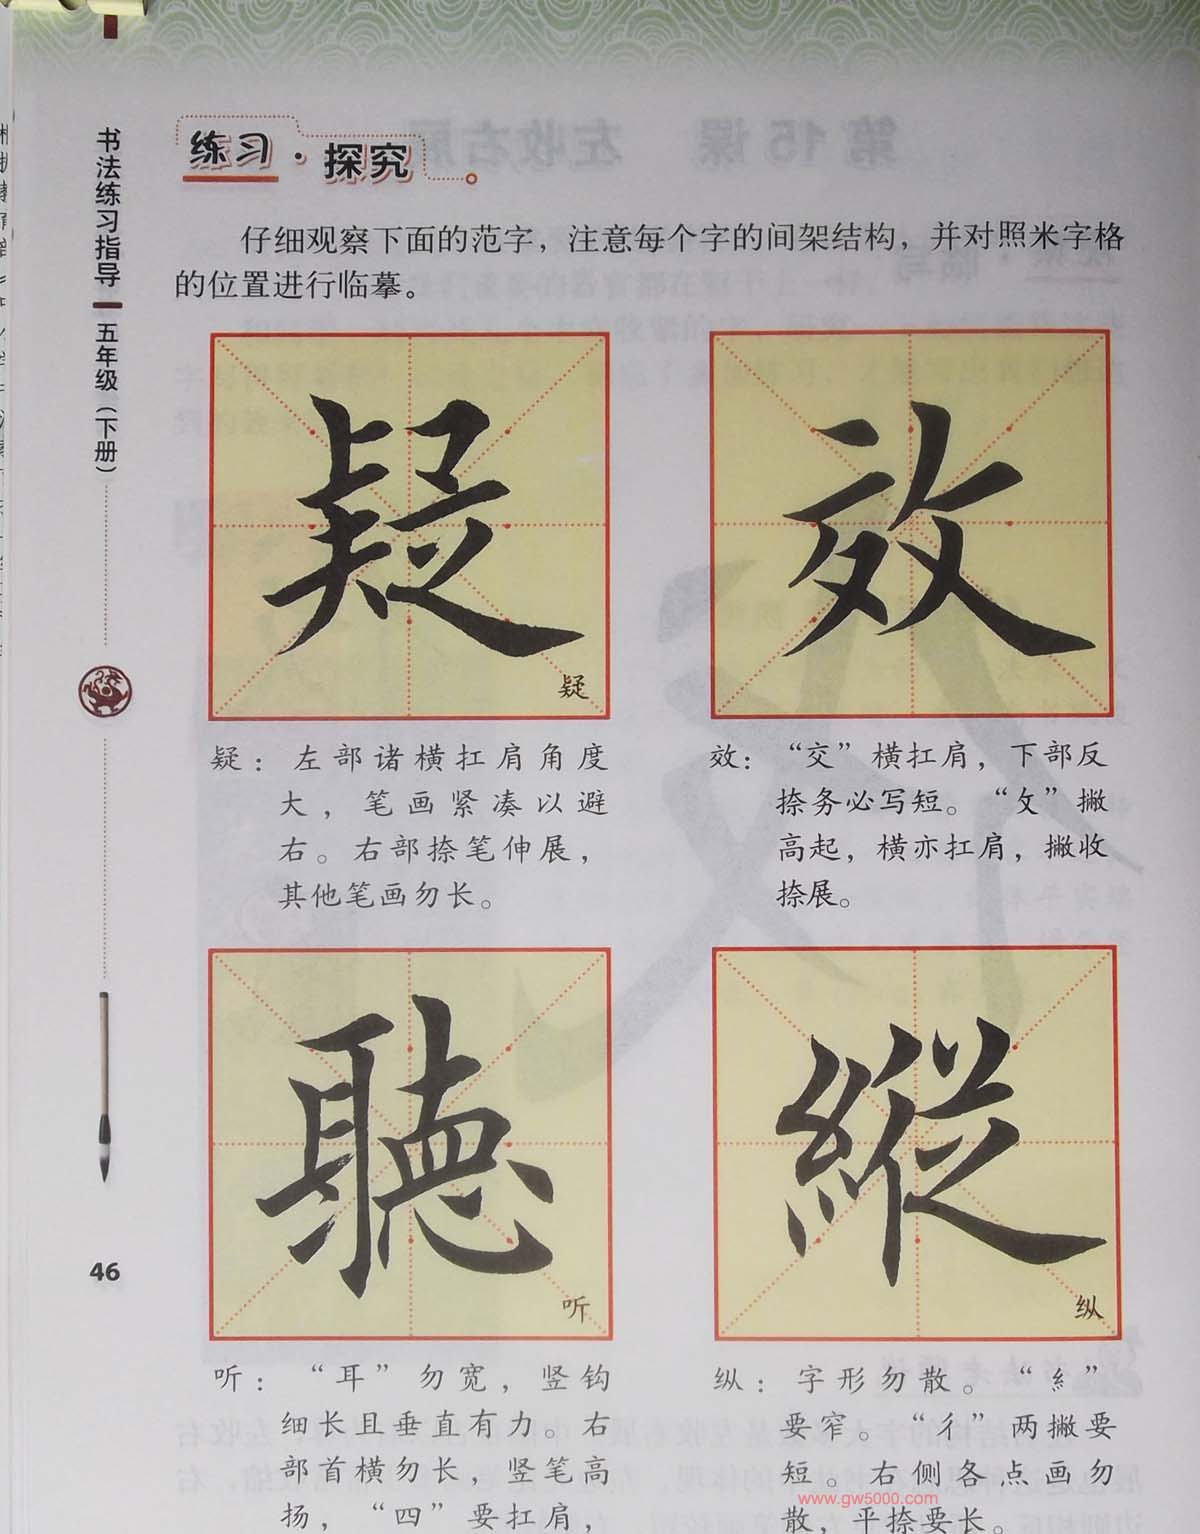 书法练习指导 五年级（下册）
46
练习·探究
仔细观察下面的范字，注意每个字的间架结构，并对照米字格
的位置进行临摹。
疑
疑
效
疑：左部诸横扛肩角度
大，笔画紧凑以避
右。右部捺笔伸展，
其他笔画勿长。
效：“交”横扛肩，下部反
捺务必写短。“攵”撇
高起，横亦扛肩，撇收
捺展。
聽
听
縱
纵
听：“耳”勿宽，竖钩
细长且垂直有力。右
部首横勿长，竖笔高
扬，“四”要扛肩，
纵：字形勿散。“糹”
要窄。“彳”两撇要
短。右侧各点画勿
散，平捺要长。
www.gw5000.com